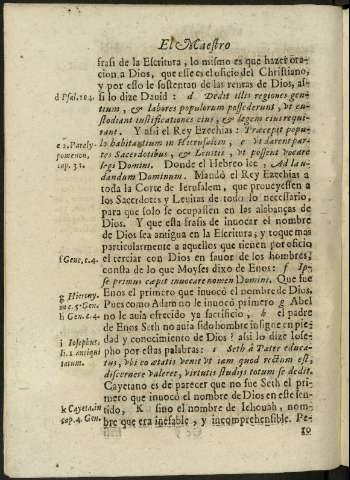 El Maestro
frasi de la Escritura, lo mismo es que hazer ora-
cion a Dios, que esse es el oficio del Christiano,
y por esso le sustentan de las rentas de Dios, as-
d Psal. 104. si lo dize Dauid: d Dedit illis regiones gen-
tium, & labores populorum possederunt, vt cu-
stodiant iustificationes eius, & legem eius requi-
rant. Y assi el Rey Ezechias: Præcepit popu-
e 2. Paraly- lo habitantium in Hierusalem, e vt darent par-
pomenon, tes Sacerdotibus, & Leuitis, vt possent vocare
cap. 31. legi Domini. Donde el Hebreo lee, Ad lau-
dandum Dominum. Mandò el Rey Ezechias a
toda la Corte de Ierusalem, que proueyessen a
los Sacerdotes y Leuitas de todo lo necessario,
para que solo se ocupassen en las alabanças de
Dios. Y que esta frasis de inuocar el nombre
de Dios sea antigua en la Escritura, y toque mas
particularmente a aquellos que tienen por oficio
f Gene. c. 4. el terciar con Dios en fauor de los hombres,
consta de lo que Moyses dixo de Enos: f Ip-
se primus cæpit inuocare nomen Domini. Que fue
g Hierony. Enos el primero que inuocò el nombre de Dios.
Pues como Adam no le inuocò primero g Abel
h Gen. c. 4. no le auia ofrecido ya sacrificio, h el padre
de Enos Seth no auia sido hombre insigne en pie-
i Iosephus, dad y conocimiento de Dios? assi lo dize Iose-
li. 1. antiqui pho por estas palabras: i Seth à Patre educa-
tatum. tus, vbi eo ætatis venit vt iam quod rectum est,
discernere valeret, virtutis studijs totum se dedit.
Cayetano es de parecer no que fue Seth el pri-
mero que inuocò el nombre de Dios en este sen-
k Cayeta. in tido, K sino el nombre de Iehouàh, nom-
cap. 4. Gen. bre que era inefable, y incomprehensible. Pe-
ro